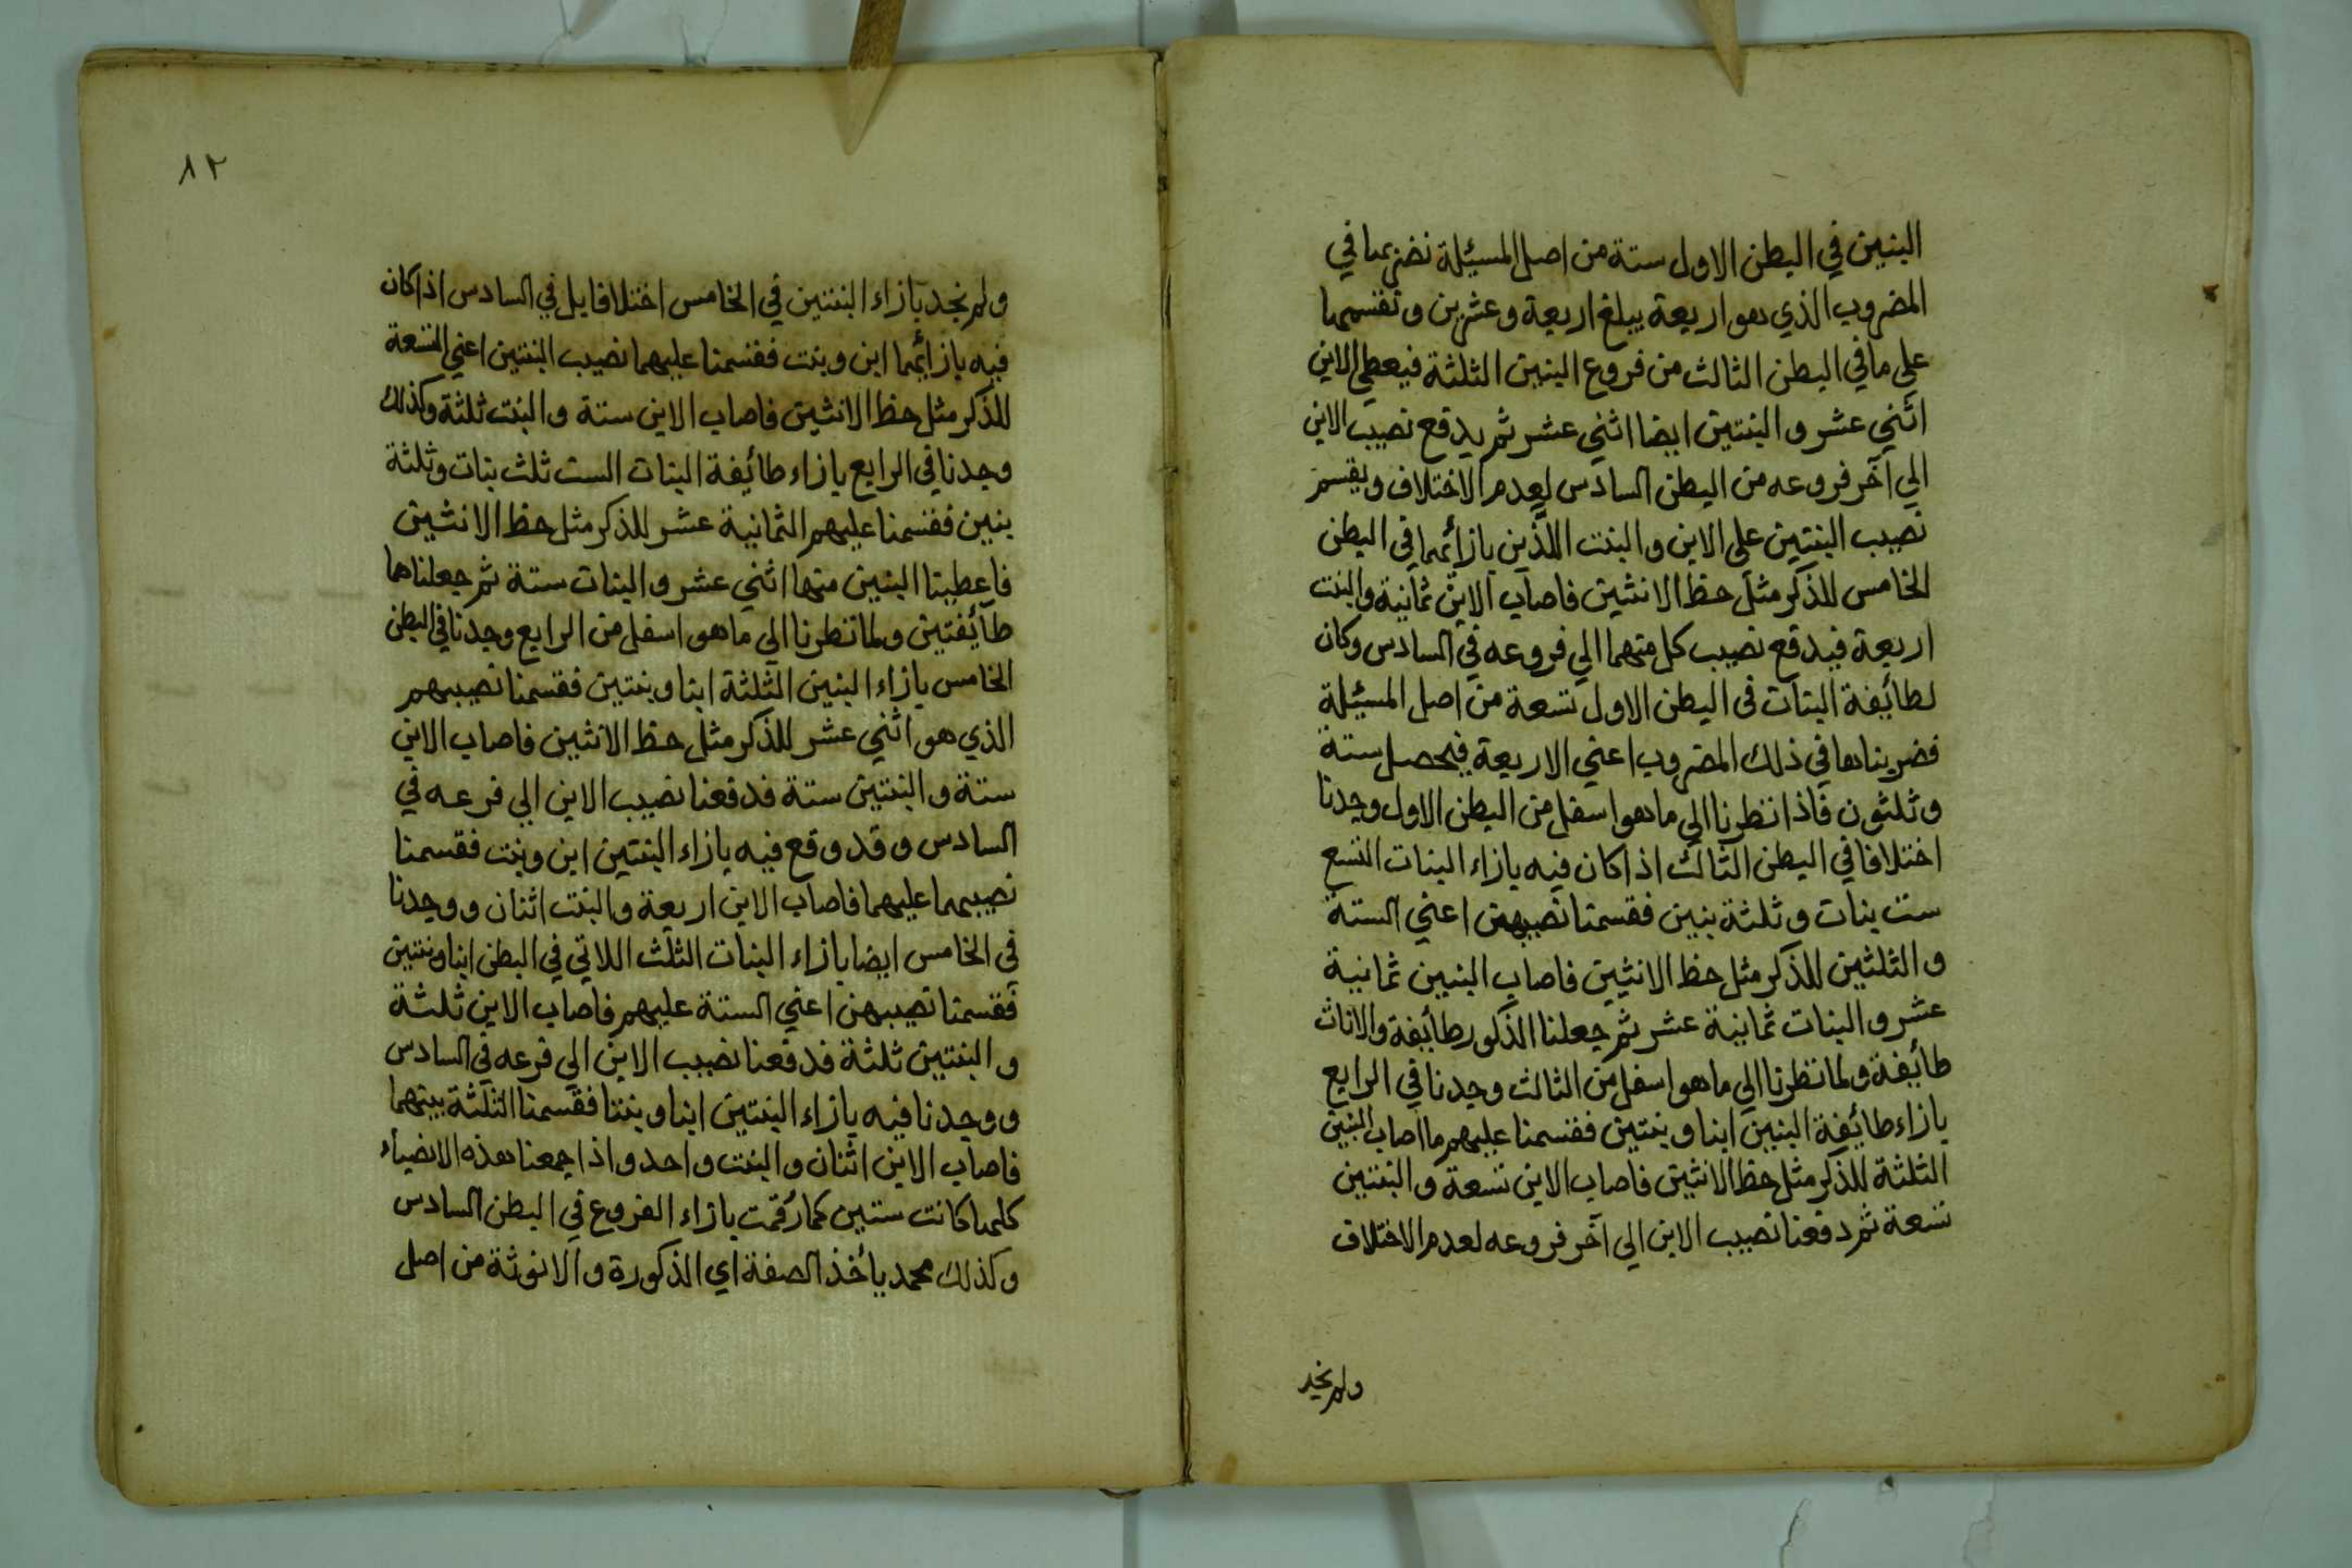 البنين في البطن الاول ستة من اصل المسئلة نضربها في
المضروب الذي هو اربعة يبلغ اربعة وعشرين وتقسمها
علي ما في البطن الثالث من فروع البنين الثلثة فيعطي الابن
اثني عشر و البنتين ايضا اثني عشر ثم يدفع نصيب الابن
الي آخر فروعه من البطن السادس لعدم الاختلاف ويقسم
نصيب البنتين علي الابن و البنت اللذين بازائهما في البطن
الخامس للذكر مثل حظ الانثيين فاصاب الابن ثمانية والبنت
اربعة فيدفع نصيب كل منهما الي فروعه في السادس وكان
لطائفة البنات في البطن الاول تسعة من اصل المسئلة
فضربناها في ذلك المضروب اعني الاربعة فيحصل ستة
و ثلثون فاذا نظرنا الي ما هو اسفل من البطن الاول وجدنا
اختلافا في البطن الثالث اذ كان فيه بازاء البنات التسع
ست بنات و ثلثة بنين فقسمنا نصيبهن اعني الستة
و الثلثين للذكر مثل حظ الانثيين فاصاب البنين ثمانية
عشر و البنات ثمانية عشر ثم جعلنا الذكور طائفة والاناث
طائفة ولما نظرنا الي ما هو اسفل من الثالث وجدنا في الرابع
بازاء طائفة البنين ابنا و بنتين فقسمنا عليهم ما اصاب البنين
الثلثة للذكر مثل حظ الانثيين فاصاب الابن تسعة و البنتين
تسعة ثم دفعنا نصيب الابن الي آخر فروعه لعدم الاختلاف
ولم نجد
٨٢
ولم نجد بازاء البنتين في الخامس اختلافا بل في السادس اذ كان
فيه بازائهما ابن و بنت فقسمنا عليهما نصيب البنتين اعني التسعة
للذكر مثل حظ الانثيين فاصاب الابن ستة و البنت ثلثة وكذلك
وجدنا في الرابع بازاء طائفة البنات الست ثلث بنات وثلثة
بنين فقسمنا عليهم الثمانية عشر للذكر مثل حظ الانثيين
فاعطينا البنين منها اثني عشر و البنات ستة ثم جعلناهما
طائفتين ولما نظرنا الي ما هو اسفل من الرابع وجدنا في البطن
الخامس بازاء البنين الثلثة ابنا و بنتين فقسمنا نصيبهم
الذي هو اثني عشر للذكر مثل حظ الانثيين فاصاب الابن
ستة و البنتين ستة فدفعنا نصيب الابن الي فرعه في
السادس و قد وقع فيه بازاء البنتين ابن وبنت فقسمنا
نصيبهما عليهما فاصاب الابن اربعة والبنت اثنان ووجدنا
في الخامس ايضا بازاء البنات الثلث اللاتي في البطن ابنا وبنتين
فقسمنا نصيبهن اعني الستة عليهم فاصاب الابن ثلثة
و البنتين ثلثة فدفعنا نصيب الابن الي فرعه في السادس
و وجدنا فيه بازاء البنتين ابنا و بنتا فقسمنا الثلثة بينهما
فاصاب الابن اثنان و البنت واحد و اذا جمعنا هذه الانصباء
كلها كانت ستين كما رقمت بازاء الفروع في البطن السادس
وكذلك محمد يأخذ الصفة اي الذكورة و الانوثة من اصل